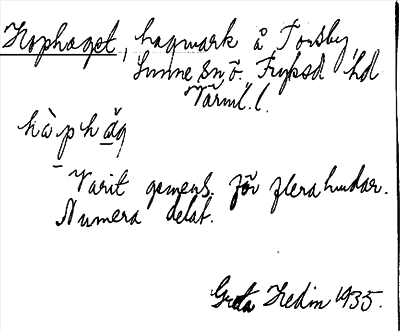 Kophaget, hagmark å Torsby,
Sunne sn ö. Fryksd hd
Värml. l.
hàphǎg
Varit gemens. för flera hudar.
Numera delat.
Greta Hedin 1935.